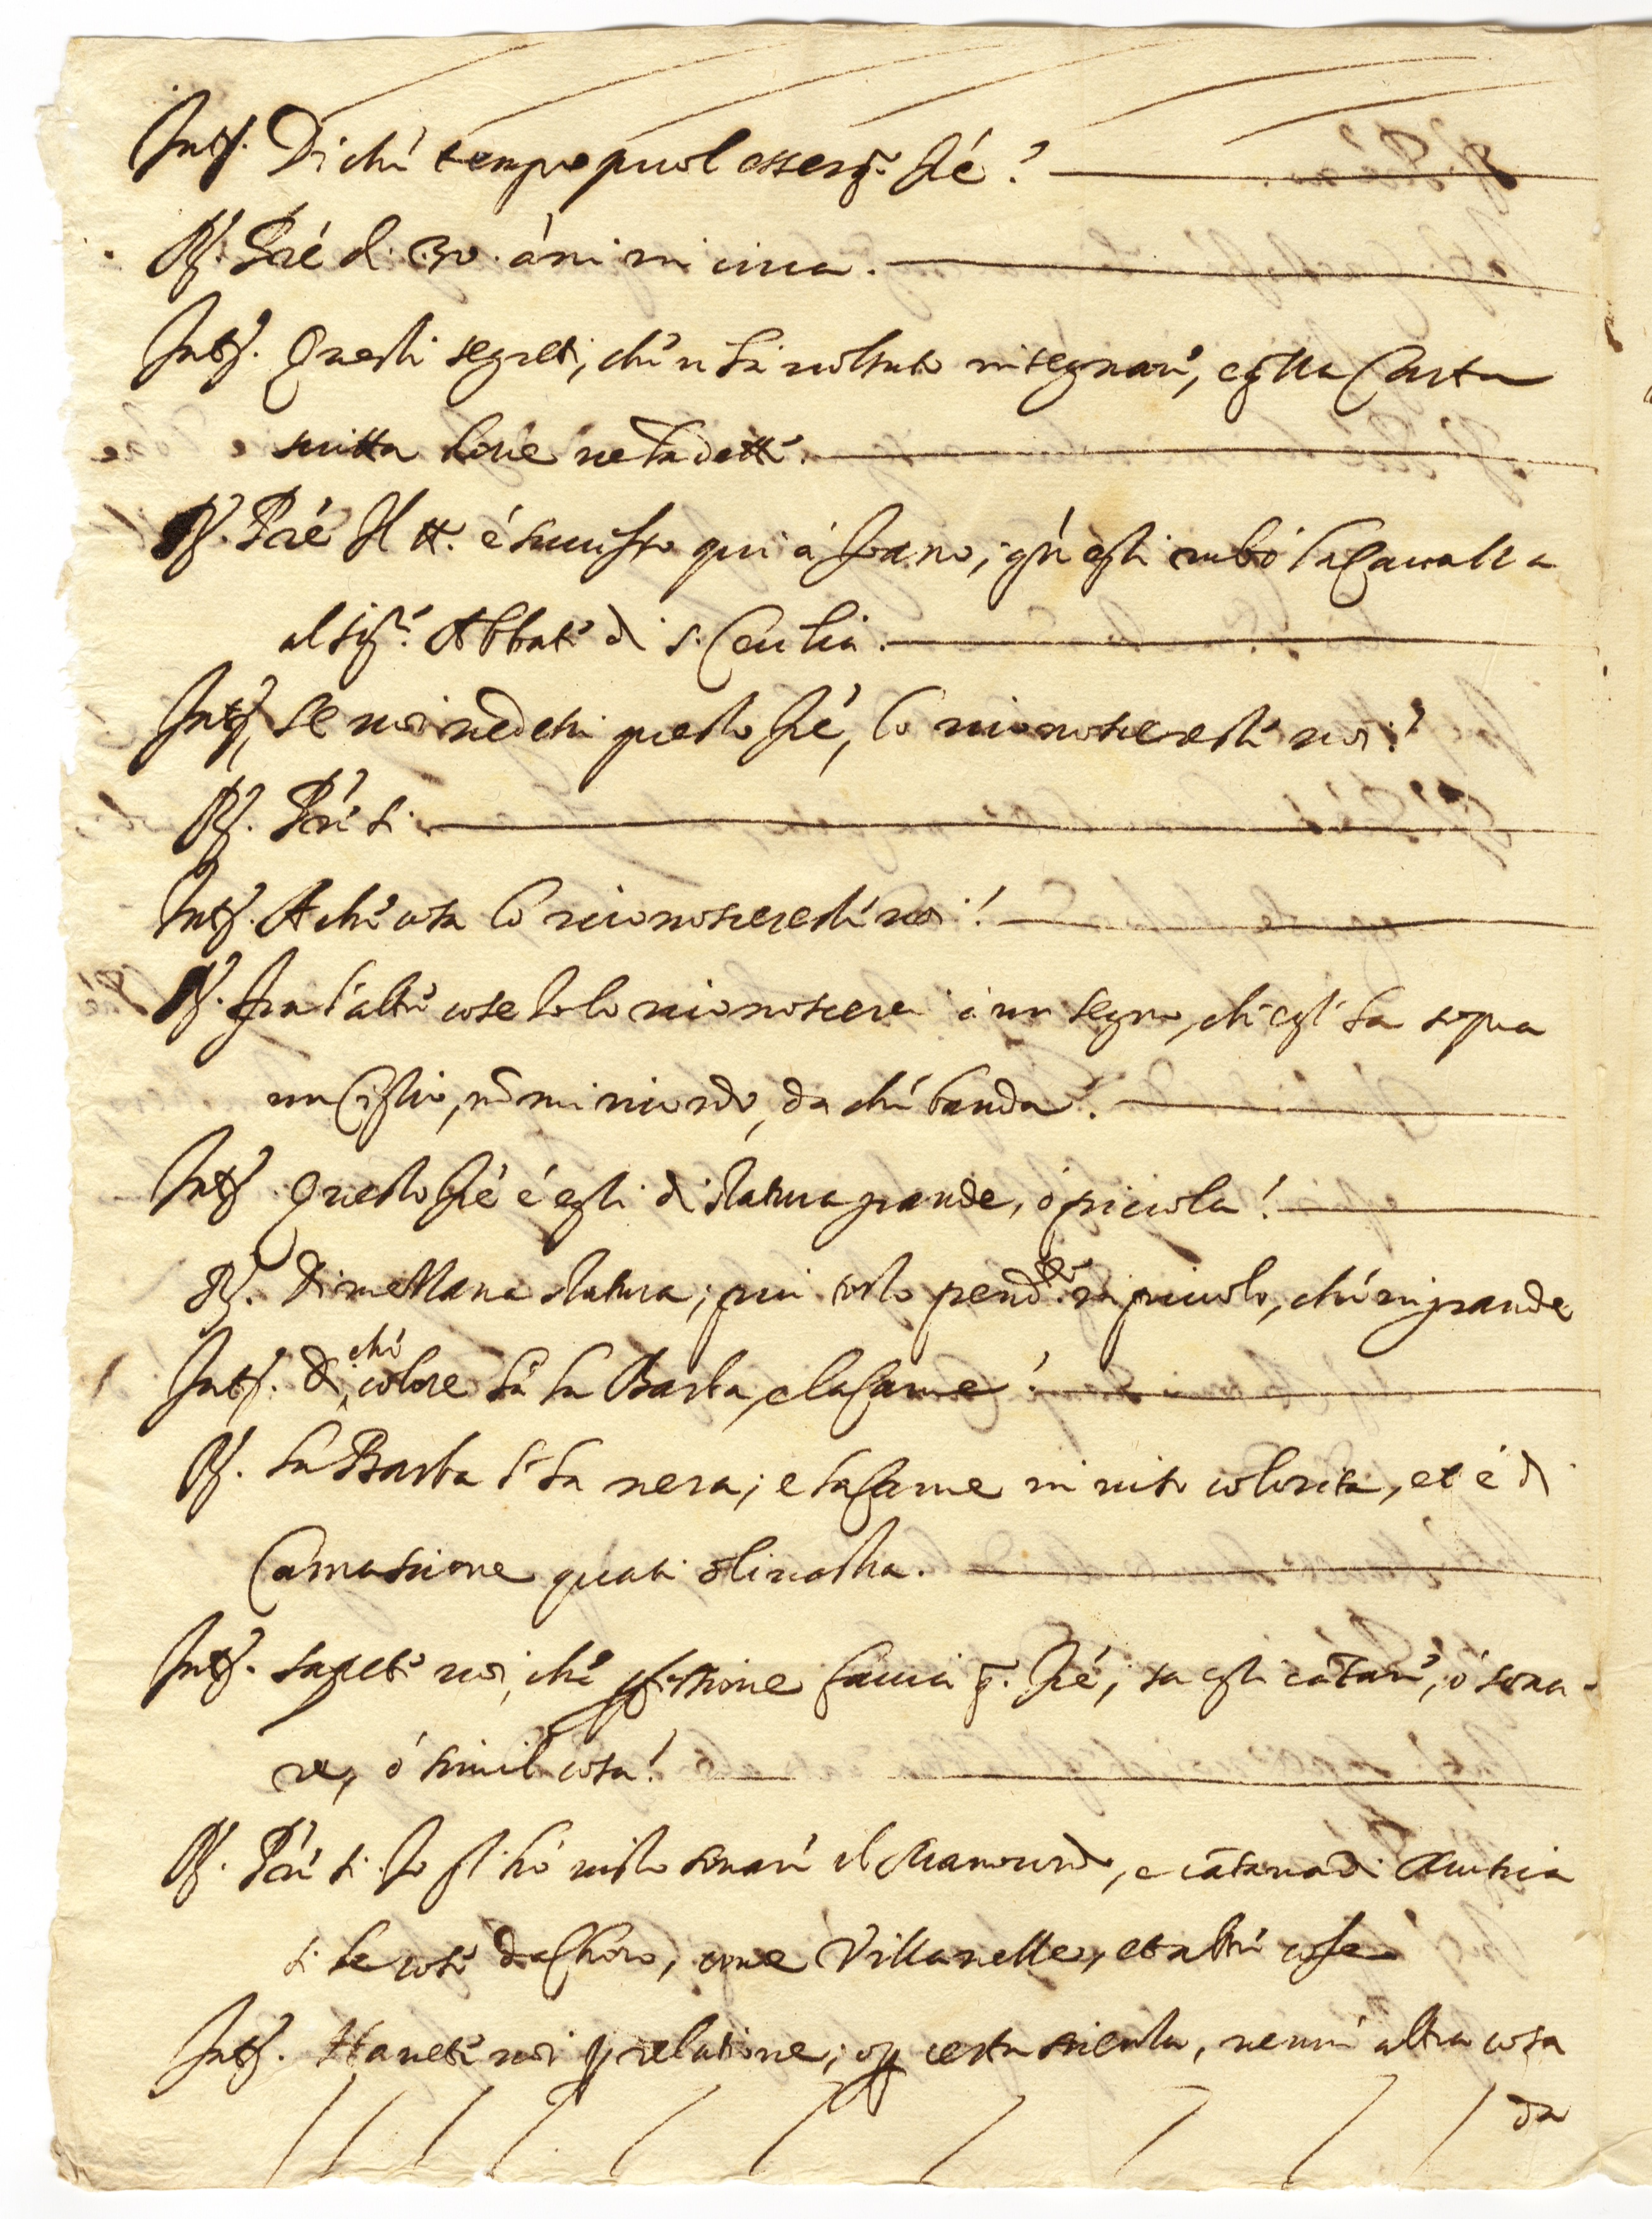 Intr. Di chi tempo puol esser q. frè?
Rs. Prè di 30. àni in circa.
Intr. Questi segreti, chè vi hà volsuto insegnarè, e q.lla Carta
scritta dove ve l'ha dettè.
Rs. Prè Il tt. è successo qui à Fano; egli rubò la Cavalla
al sig.r Abbatè di S. Cecilia.
Intr. Se voi vedesti questo frè, lo riconoscerestè voi?
Rs. Prè si
Intr. A chè cosa lo riconoscerestè voi?
Rs. Fra l'altrè cose io lo riconoscerei à un segno, ch'egli ha sopra
un Ciglio, nõ mi ricordo, da chè banda.
Intr. Questo frè è egli di statura grande, ò piccola!
Rs. Di mezzana statura; più tosto pend.te in piccolo, chè in grande
Intr. Di chè colore hà la Barba, e la Carne!
Rs. La Barba l'ha nera; e la Carne in viso colorita, et è di
Carnascione quasi olivastra.
Intr. Sapetè voi, chè professione facci q. frè; sa egli cãtarè, ò sona-
re, ò simil cosa!
Rs. Prè si. Io gli hò visto sonarè il Manocordo, e cãtava di Musica
si le cose da Choro, come Villanelle, et altrè cose
Intr. Havetè voi p relatione, ò p certa scienza, nessun altra cosa
da